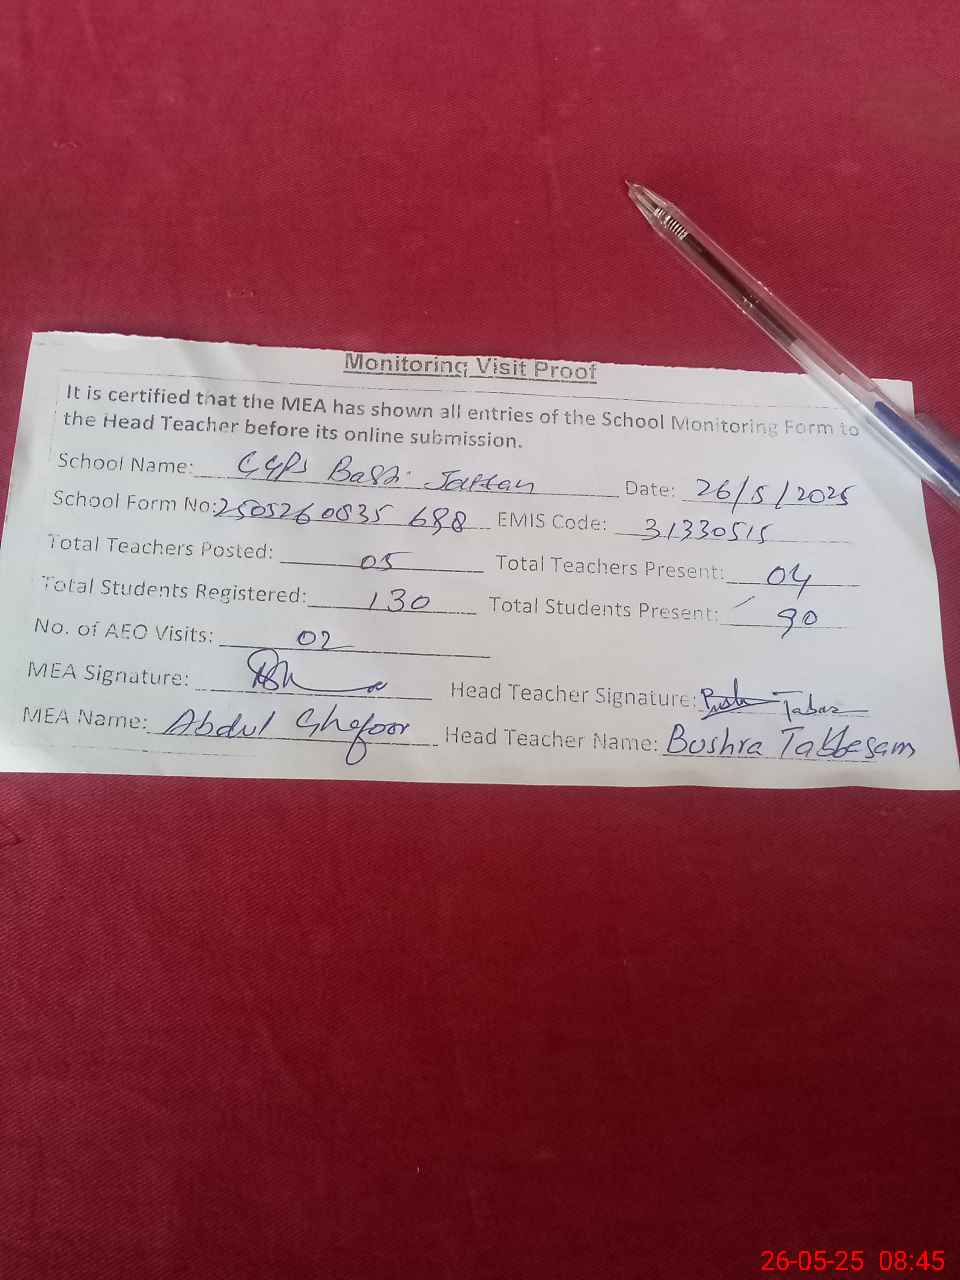 Monitoring Visit Proof
It is certified that the MEA has shown all entries of the School Monitoring Form to
the Head Teacher before its online submission.
School Name: Jattan Date: 26/5/2025
School Form No: 2505260835 688 EMIS Code: 31330515
Total Teachers Posted: 05 Total Teachers Present: 04
Total Students Registered: 130 Total Students Present: 90
No. of AEO Visits: 02
MEA Signature: Head Teacher Signature:
MEA Name: Abdul Ghafoor Head Teacher Name: Bushra Tabbesam
26-05-25 08:45